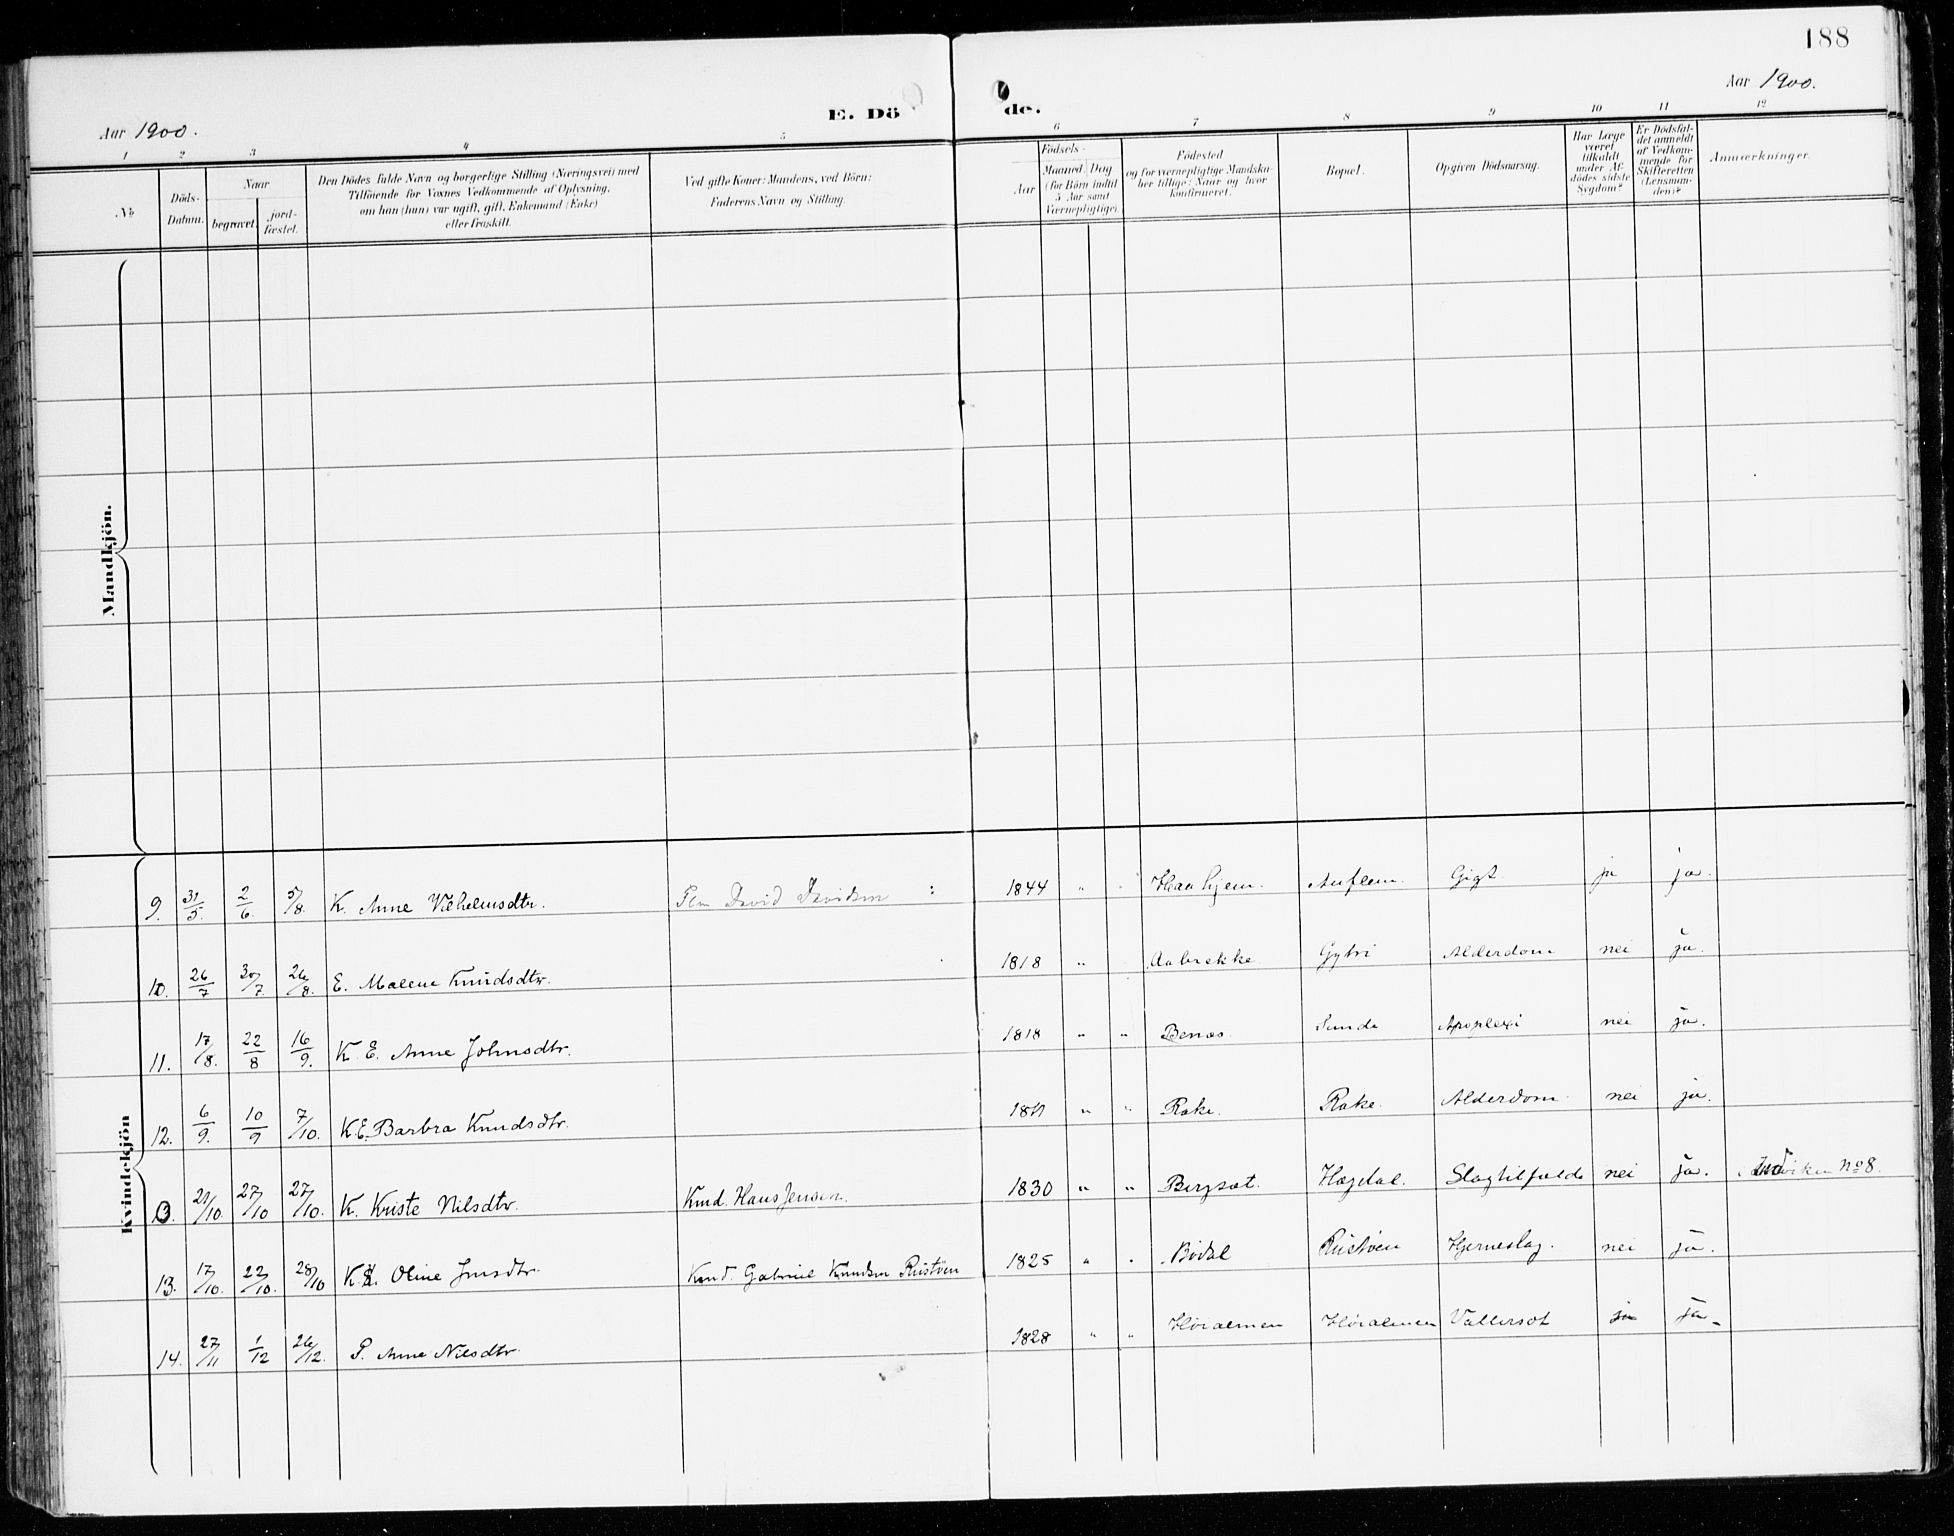 188
Aar 1900.
Aar 1900.
E. Dö de.
1 2 3 4 5 6 7 8 9 10 11 12
No
Döds-Datum.
Naar
begravet.
jord-fæstet.
Den Dödes fulde Navn og borgerlige Stilling (Næringsvei) med
Tilföiende for Voxnes Vedkommende af Oplysning,
om han (hun) var ugift, gift, Enkemand (Enke)
eller fraskilt.
Ved gifte Koner: Mandens, ved Börn:
Faderens Navn og Stilling.
Födsels-
Aar
Maaned. Dag
(for Börn indtil
5 Aar samt
Værnepligtige)
Födested
og for værnepligtige Mandska-
ber tillige: Naar og hvor
konfirmeret.
Bopæl.
Opgiven Dödsaarsag.
Har Læge
været
tilkaldt
under Af-
dödes sidste
Sygdom?
Er Dödsfal-
det anmeldt
af Vedkom-
mende for
Skifteretten
(Lensman-
den)?
Anmærkninger.
Mandkjön.
Kvindekjön
9. 31/5. 2/6. 5/8. K. Anne Vilhelmsdtr. David Davidsen 1844 " Haahjem. Auflem. Gigt. ja ja.
10. 26/7 30/7 26/8. E. Malene Knudsdtr. 1818 " Aabrekke Gytri Alderdom nei ja.
11. 17/8. 22/8 16/9. K. E. Anne Johnsdtr. 1818 " " Benæs. Sunde Apoplexi nei ja.
12. 6/9. 10/9 7/10. K.E. Barbra Knudsdtr. 1811 " " Rake. Rake. Alderdom nei ja.
21/10 27/10 27/10. K. Kriste Nilsdtr. Kmd. Hans Jensen. 1830 " " Bergset. Hægdal. Slagtilfælde nei ja. No 8.
13. 17/10. 22/10. 28/10 Oline Jensdtr. Kmd. Gabriel Knudsen Rustøen 1825 " " Bødal Rustøen Hjerneslag. nei ja.
14. 27/11 1/12 26/12. P. Anne Nilsdtr. 1828 " " Høialmen Høialmen Vattersot ja ja.